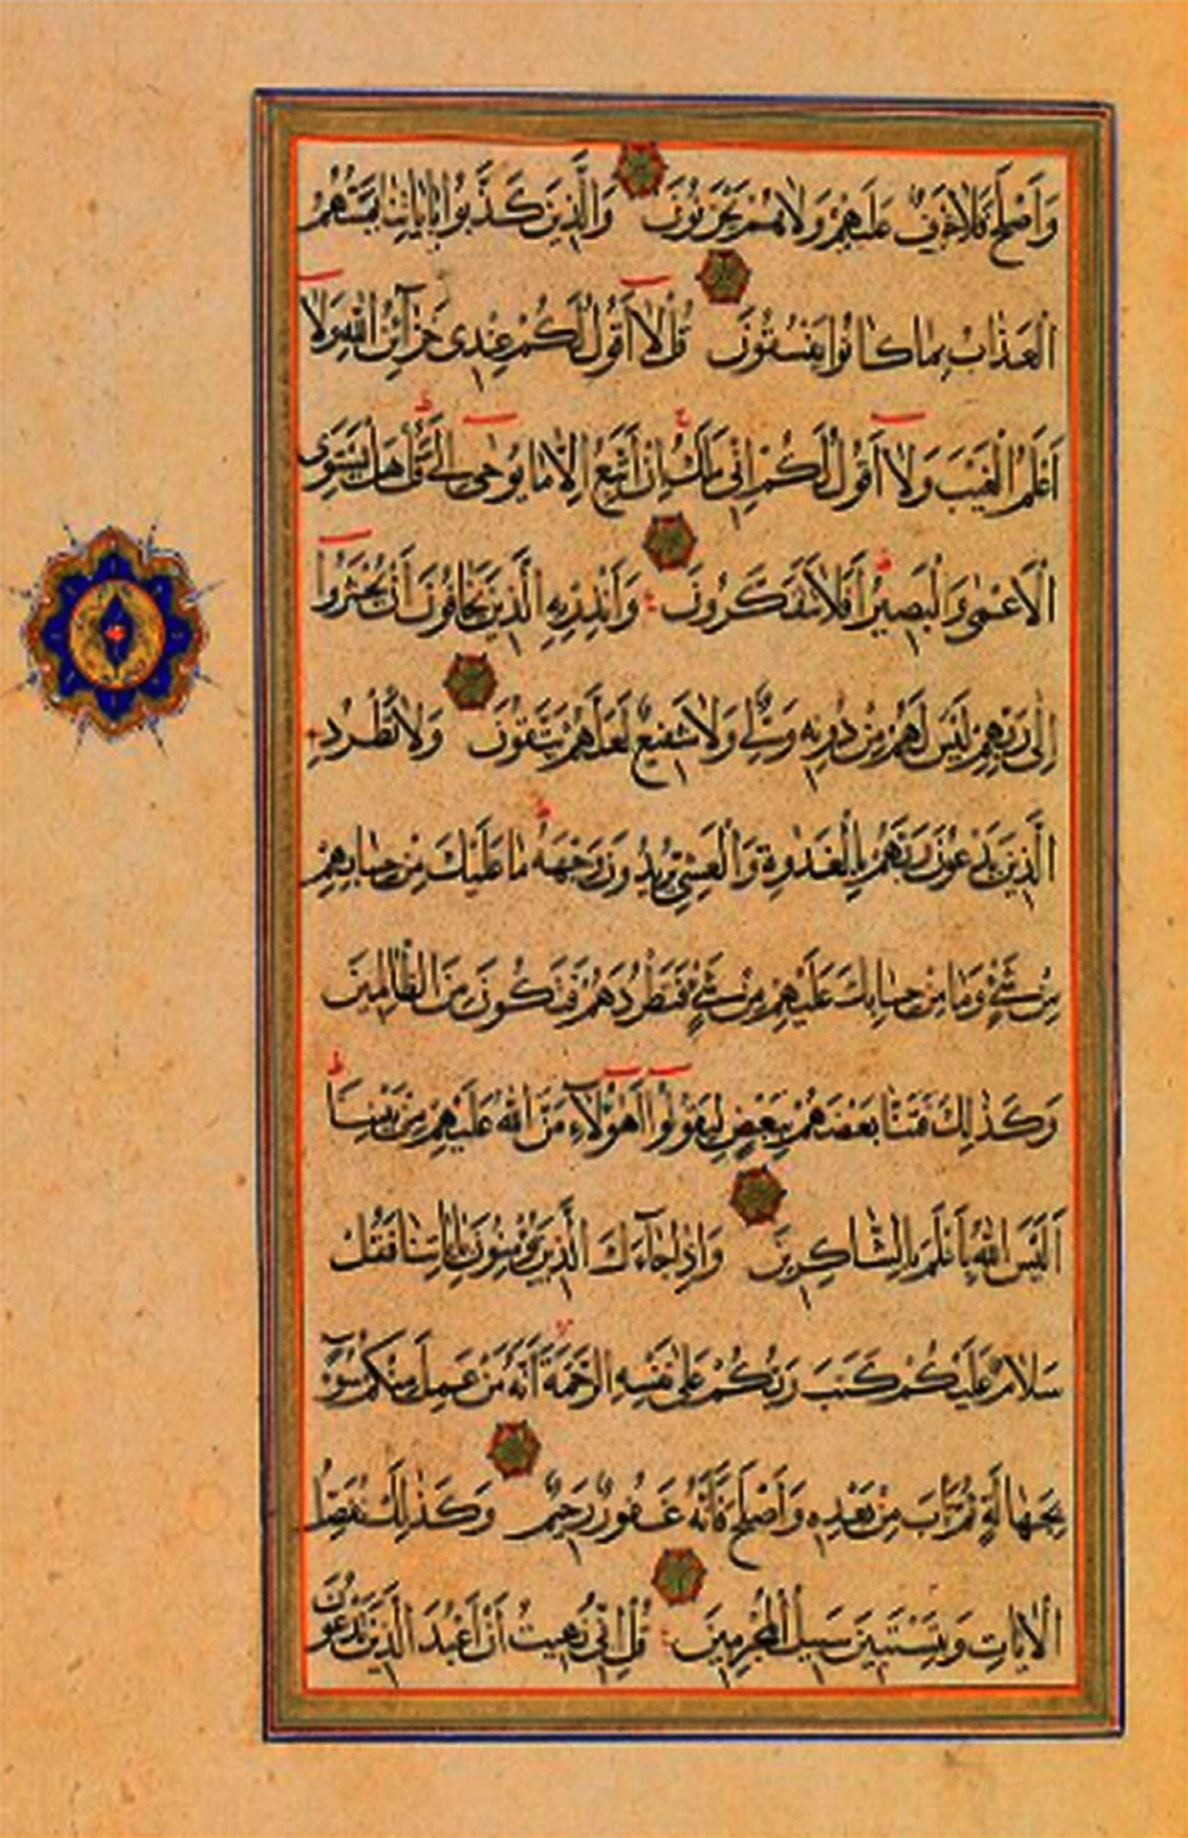 وَأَصْلَحَ فَلَا خَوْفٌ عَلَيْهِمْ وَلَا هُمْ يَحْزَنُونَ وَالَّذِينَ كَذَّبُوا بِآيَاتِنَا يَمَسُّهُمُ
الْعَذَابُ بِمَا كَانُوا يَفْسُقُونَ قُلْ لَا أَقُولُ لَكُمْ عِنْدِي خَزَآئِنُ اللَّهِ وَلَا
أَعْلَمُ الْغَيْبَ وَلَا أَقُولُ لَكُمْ إِنِّي مَلَكٌ إِنْ أَتَّبِعُ إِلَّا مَا يُوحَى إِلَيَّ قُلْ هَلْ يَسْتَوِي
الْأَعْمَى وَالْبَصِيرُ أَفَلَا تَتَفَكَّرُونَ وَأَنْذِرْ بِهِ الَّذِينَ يَخَافُونَ أَنْ يُحْشَرُوا
إِلَى رَبِّهِمْ لَيْسَ لَهُمْ مِنْ دُونِهِ وَلِيٌّ وَلَا شَفِيعٌ لَعَلَّهُمْ يَتَّقُونَ وَلَا تَطْرُدِ
الَّذِينَ يَدْعُونَ رَبَّهُمْ بِالْغَدٰوةِ وَالْعَشِيِّ يُرِيدُونَ وَجْهَهُ مَا عَلَيْكَ مِنْ حِسَابِهِمْ
مِنْ شَيْءٍ وَمَا مِنْ حِسَابِكَ عَلَيْهِمْ مِنْ شَيْءٍ فَتَطْرُدَهُمْ فَتَكُونَ مِنَ الظَّالِمِينَ
وَكَذَلِكَ فَتَنَّا بَعْضَهُمْ بِبَعْضٍ لِيَقُولُوا أَهَؤُلَآءِ مَنَّ اللَّهُ عَلَيْهِمْ مِنْ بَيْنِنَا
أَلَيْسَ اللَّهُ بِأَعْلَمَ بِالشَّاكِرِينَ وَإِذَا جَآءَكَ الَّذِينَ يُؤْمِنُونَ بِآيَاتِنَا فَقُلْ
سَلَامٌ عَلَيْكُمْ كَتَبَ رَبُّكُمْ عَلَى نَفْسِهِ الرَّحْمَةَ أَنَّهُ مَنْ عَمِلَ مِنْكُمْ سُوٓءًا
بِجَهَالَةٍ ثُمَّ تَابَ مِنْ بَعْدِهِ وَأَصْلَحَ فَأَنَّهُ غَفُورٌ رَحِيمٌ وَكَذَلِكَ نُفَصِّلُ
الْآيَاتِ وَلِتَسْتَبِينَ سَبِيلُ الْمُجْرِمِينَ قُلْ إِنِّي نُهِيتُ أَنْ أَعْبُدَ الَّذِينَ تَدْعُونَ